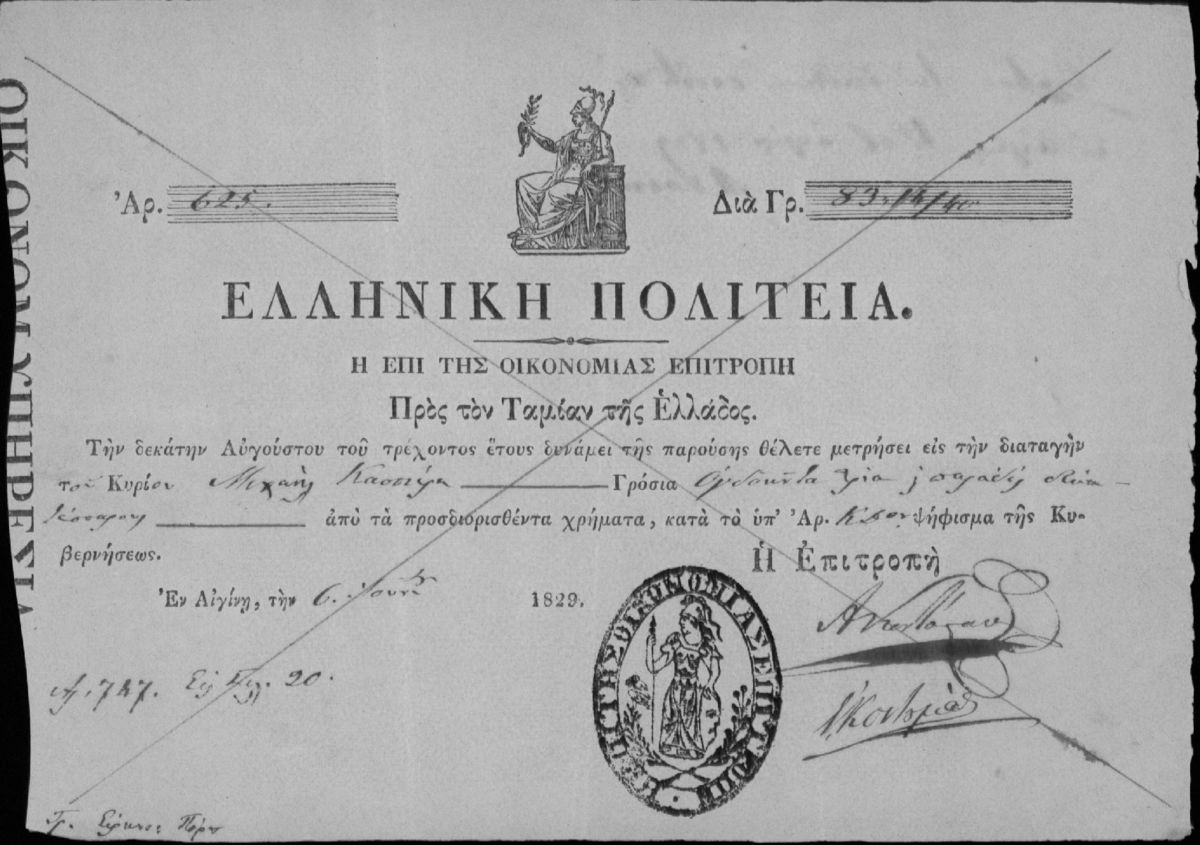 Ἀρ. 625.
Διὰ Γρ. 83:14/40
ΕΛΛΗΝΙΚΗ ΠΟΛΙΤΕΙΑ.
Η ΕΠΙ ΤΗΣ ΟΙΚΟΝΟΜΙΑΣ ΕΠΙΤΡΟΠΗ
Πρὸς τὸν Ταμίαν τῆς Ἑλλάδος.
Τὴν δεκάτην Αὐγούστου τοῦ τρέχοντος ἔτους δυνάμει τῆς παρούσης θέλετε μετρήσει εἰς τὴν διαταγὴν
τοῦ Κυρίου Μιχαὴλ Γρόσια ὀγδοήντα τρία
ἀπὸ τὰ προσδιορισθέντα χρήματα, κατὰ τὸ ὑπ' Ἀρ. ψήφισμα τῆς Κυ-
βερνήσεως.
Ἡ Ἐπιτροπὴ
Ἐν Αἰγίνῃ, τὴν 6. 1829.
Η ΕΠΙ ΤΗΣ ΟΙΚΟΝΟΜΙΑΣ ΕΠΙΤΡΟΠΗ
Ἀρ. 747. 20.
ΟΙΚΟΝΟΜ ΥΠΗΡΕΣΙΑ